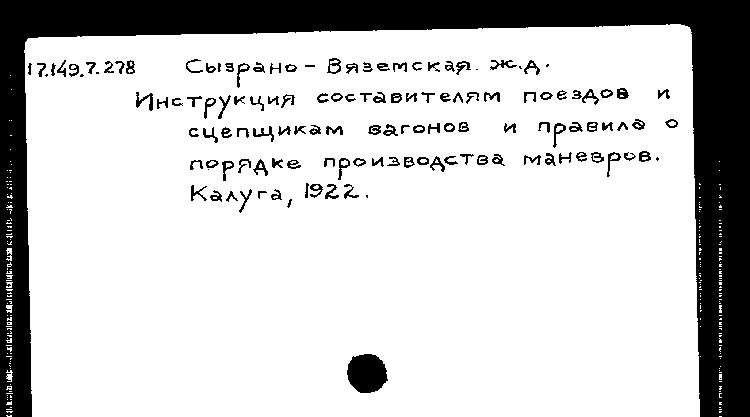 17.149.7.278 Сызрано-Вяземская ж.д.
Инструкция составителям поездов и
сцепщикам вагонов и правила о
порядке производства маневров.
Калуга, 1922.